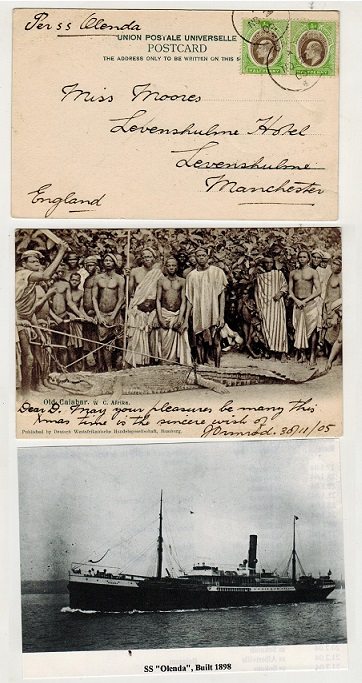 Per ss Olenda
UNION POSTALE UNIVERSELLE
POSTCARD
THE ADDRESS ONLY TO BE WRITTEN ON THIS S
Miss Moores
Levenshulme Hotel
Levenshulme
Manchester
England
Old Calabar. W. C. Afrika.
Dear D. May your pleasures be many this
Xmas time is the sincere wish of
J Ormrod. 30/11/05
Published by Deutsch Westafrikanische Handelsgesellschaft, Hamburg.
SS "Olenda", Built 1898